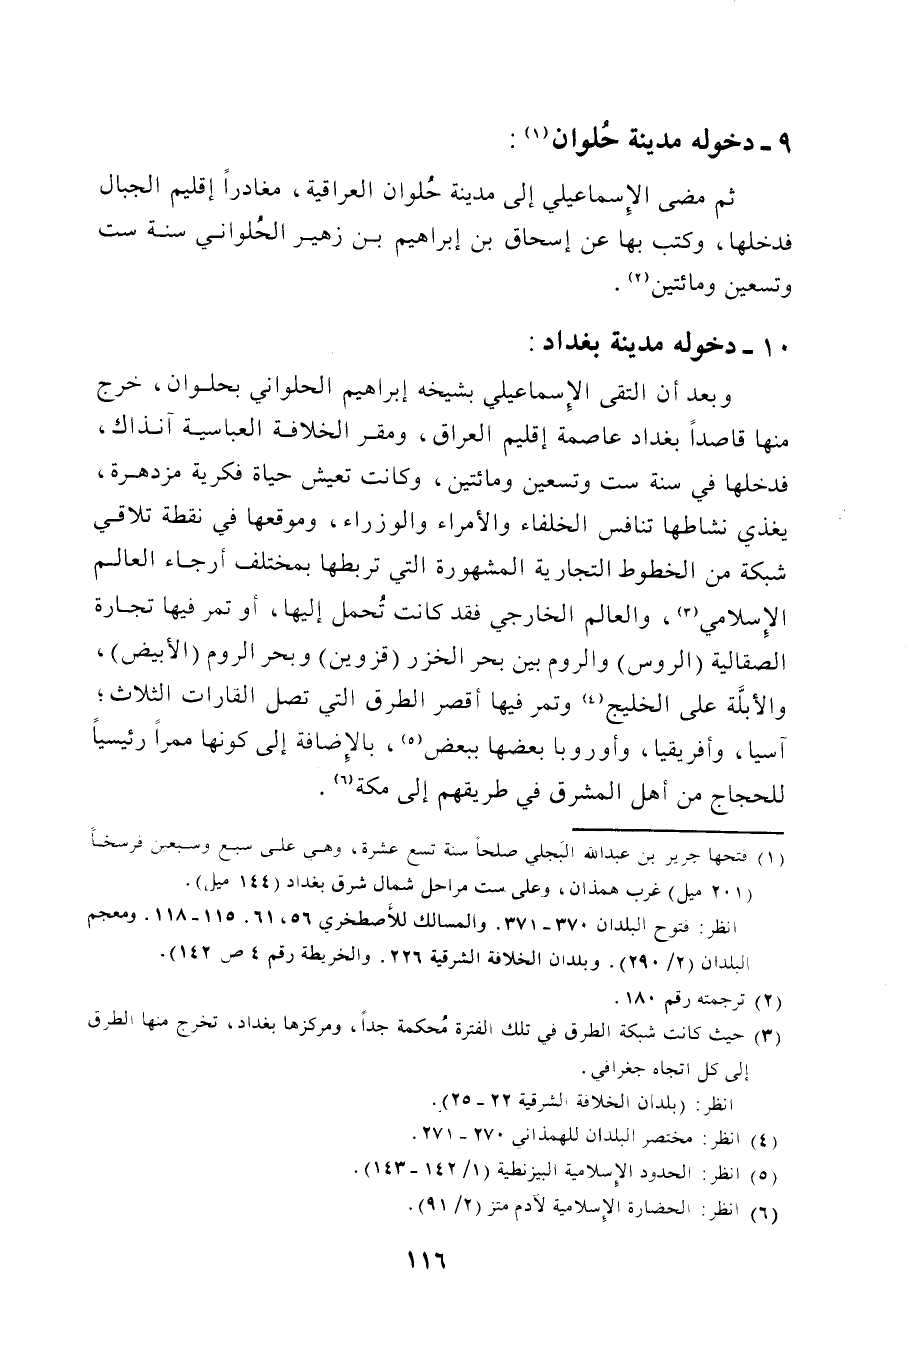 ٩ ـ دخوله مدينة حُلوان(١) :
ثم مضى الإِسماعيلي إلى مدينة حُلوان العراقية ، مغادراً إقليم الجبال
فدخلها ، وكتب بها عن إسحاق بن إبراهيم بـن زهيـر الحُلوانـي سنـة ست
وتسعين ومائتين(٢) .
١٠ ـ دخوله مدينة بغداد :
وبعد أن التقى الإِسماعيلي بشيخه إبراهيم الحلواني بحلـوان ، خرج
منها قاصداً بغداد عاصمة إقليم العراق ، ومقـر الخلافـة العباسيـة آنـذاك ،
فدخلها في سنة ست وتسعين ومائتين ، وكانت تعيش حياة فكرية مزدهـرة ،
يغذي نشاطها تنافس الخلفاء والأمراء والوزراء ، وموقعها في نقطة تلاقـي
شبكة من الخطوط التجارية المشهورة التي تربطها بمختلف أرجـاء العالـم
الإِسلامي(٣) ، والعالم الخارجي فقد كانت تُحمل إليها ، أو تمر فيها تجـارة
الصقالبة (الروس) والروم بين بحر الخزر (قزوين) وبحر الروم (الأبيض) ،
والأبلَّة على الخليج(٤) وتمر فيها أقصر الطرق التي تصل القارات الثلاث ؛
آسيا ، وأفريقيا ، وأوروبا بعضها ببعض(٥) ، بالإِضافة إلى كونها ممراً رئيسياً
للحجاج من أهل المشرق في طريقهم إلى مكة(٦) .
(١) فتحها جرير بن عبدالله البَجلي صلحاً سنة تسع عشرة ، وهـي علـى سبع وسبعين فرسخـاً
(٢٠١ ميل) غرب همذان ، وعلى ست مراحل شمال شرق بغداد (١٤٤ ميل) .
انظر : فتوح البلدان ٣٧٠ ـ ٣٧١ . والمسالك للأصطخري ٥٦ ، ٦١ . ١١٥ ـ ١١٨ . ومعجم
البلدان (٢/ ٢٩٠) . وبلدان الخلافة الشرقية ٢٢٦ . والخريطة رقم ٤ ص ١٤٢) .
(٢) ترجمته رقم ١٨٠ .
(٣) حيث كانت شبكة الطرق في تلك الفترة مُحكمة جداً ، ومركزها بغداد ، تخرج منها الطرق
إلى كل اتجاه جغرافي .
انظر : (بلدان الخلافة الشرقية ٢٢ ـ ٢٥) .
(٤) انظر : مختصر البلدان للهمذاني ٢٧٠ ـ ٢٧١ .
(٥) انظر : الحدود الإِسلامية البيزنطية (١/ ١٤٢ ـ ١٤٣) .
(٦) انظر : الحضارة الإِسلامية لآدم متز (٢/ ٩١) .
١١٦